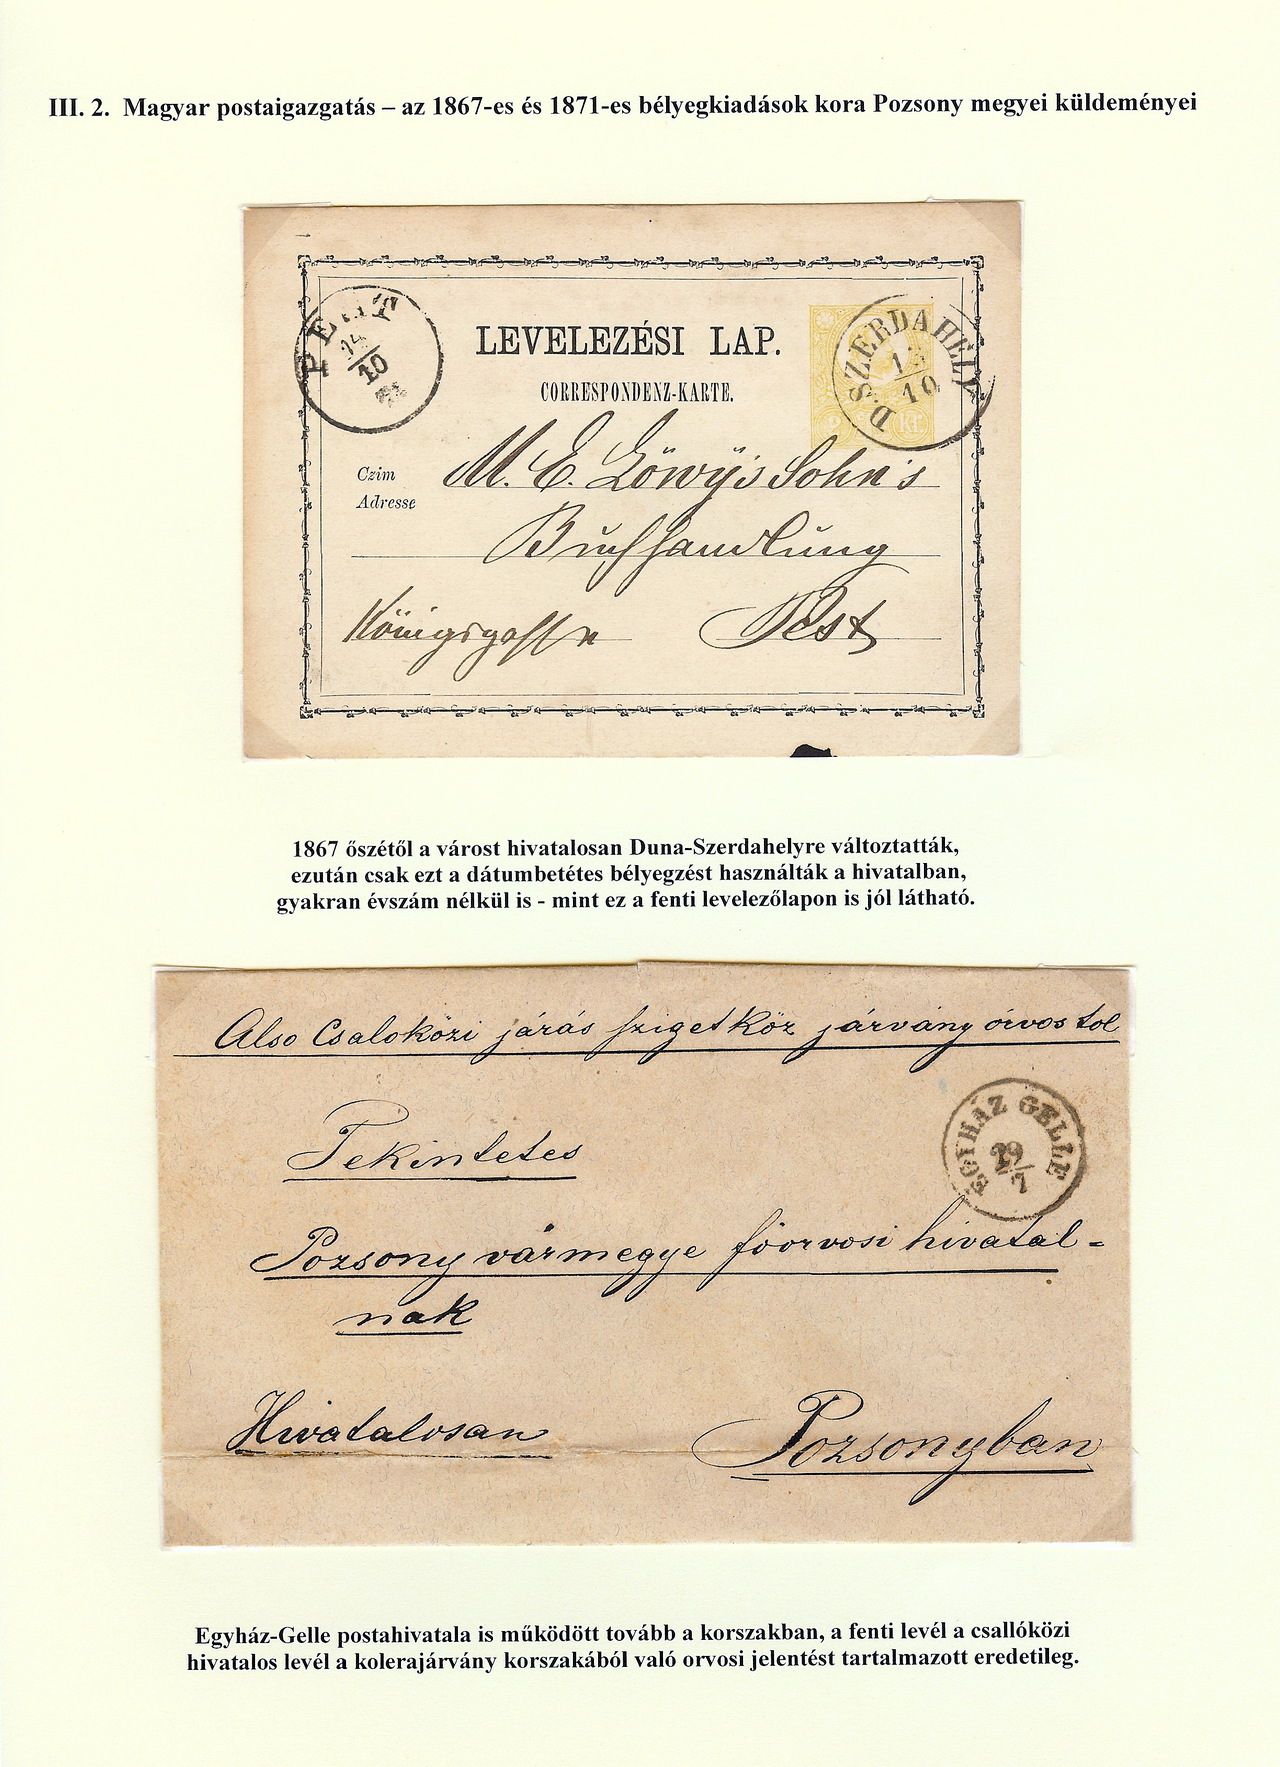 III. 2. Magyar postaigazgatás – az 1867-es és 1871-es bélyegkiadások kora Pozsony megyei küldeményei
PEST
14
10
LEVELEZÉSI LAP.
CORRESPONDENZ-KARTE.
D. SZERDAHELY
10
2 Kr.
Czim
Adresse
M. E. Löwÿ's Sohn's
Buchhandlung
Königsgasse Pest
1867 őszétől a várost hivatalosan Duna-Szerdahelyre változtatták,
ezután csak ezt a dátumbetétes bélyegzést használták a hivatalban,
gyakran évszám nélkül is - mint ez a fenti levelezőlapon is jól látható.
Also Csaloközi járás szigetköz járvány órvostol
EGYHÁZ GELLE
29
7
Tekintetes
Pozsony vármegye főorvosi hivatal=
nak
Hivatalosan
Pozsonyban
Egyház-Gelle postahivatala is működött tovább a korszakban, a fenti levél a csallóközi
hivatalos levél a kolerajárvány korszakából való orvosi jelentést tartalmazott eredetileg.